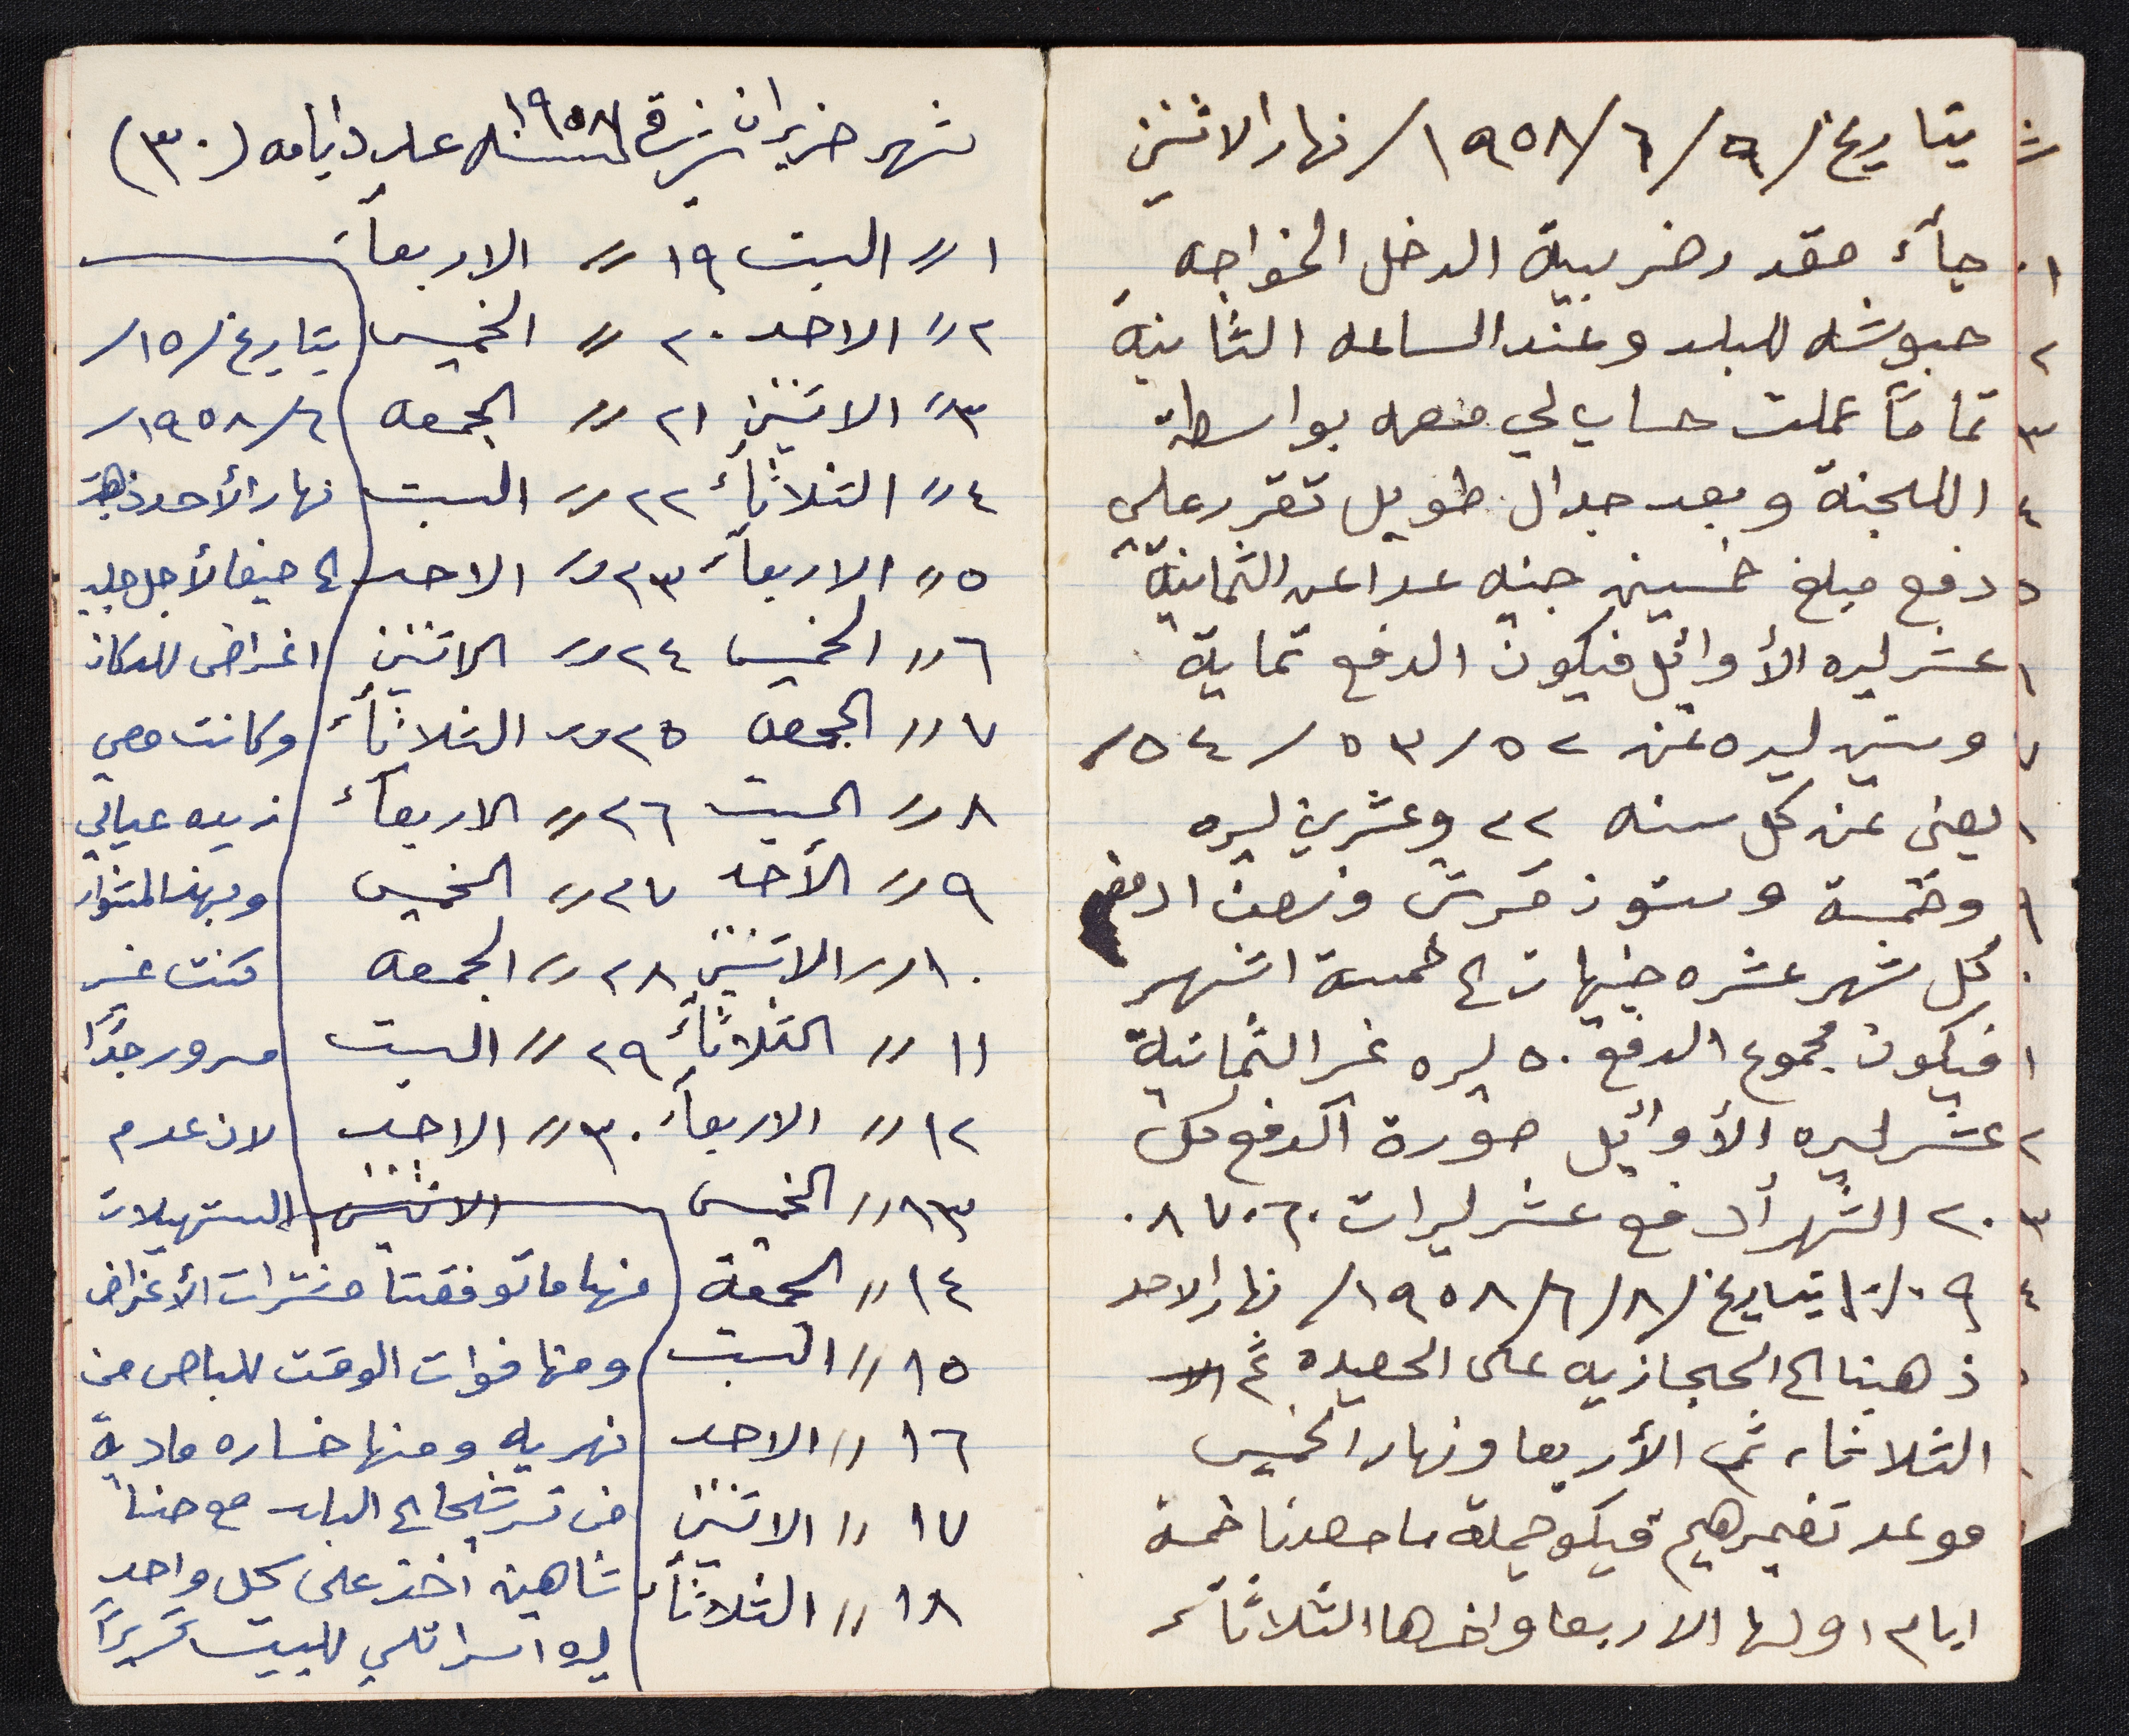 بتاريخ /٩/٦/١٩٥٨/ نهار الاثنين
جآء مقدر ضريبية الدخل الخواجه
حبوشه للبلد وعند الساعه الثانية
تماماً عملت حساب لي معه بواسطة
اللجنة وبعد جدال طويل تقرر علي
دفع مبلغ خمسين جنيه عدا عن الثمانية
عشر ليره الأوائل فيكون الدفع تماية
وستين ليره عن ٥٢/٥٣/٥٤/
يعني عن كل سنه ٢٢ وعشرين ليره
وخمسة وستون قرش ونصف ادفع
كل شهر عشره جنيهات الى خمسة اشهر
فيكون مجموع الدفع ٥٠ ليره غير الثمانية
عشر ليره الأوائل صورة الدفع كل
٢٠ الشهر أدفع عشر ليرات ٦٠،٧،٨٠
٩،١٠/ بتاريخ /٨/٦/١٩٥٨/ نهار الاحد
ذهبنا الى الحجازيه على الحصيده ثم الا
الثلاثاء ثم الأربعا ونهار الخميس
موعد تغميرهم فيكو جملة ما حصدنا خمسة
ايام اولها الاربعا واخرها الثلاثآء
شهر حزيران شرقي سنه ١٩٥٨ عدد أيامه (٣٠)
١ // السبت ١٩ // الاربعآء
٢ // الاحد ٢٠ // الخميس
٣ // الاثنين ٢١ // الجمعه
٤ // الثلاثآء ٢٢ // السبت
٥ // الاربعآء ٢٣ // الاحد
٦ // الخميس ٢٤ // الاثنين
٧ // الجمعه ٢٥ // الثلاثآء
٨ // السبت ٢٦ // الاربعآء
٩ // الأحد ٢٧ // الخميس
١٠ // الاثنين ٢٨ // الجمعه
١١ // الثلاثآء ٢٩ // السبت
١٢ // الاربعآء ٣٠ // الاحد
١٣ // الخميس الاثنين
١٤ // الجمعة
١٥ // السبت
١٦ // الاحد
١٧ // الاثنين
١٨ // الثلاثآء
بتاريخ /١٥/
٦/١٩٥٨/
نهار الأحد ذهبت
الى حيفا لأجل جلب
اغراض للدكان
وكانت معي
زيبه عيالي
وبهذا المشوار
كنت غير
مسرور جدًا
لان عدم
التسهيلات
منها ما توفقنا مشترات الأغراض
ومنها فوات الوقت للباص من
نهريه ومنها خساره مادية
من ترشيحا الى البلد مع حنا
شاهين اخذ على كل واحد
ليره اسرائلي للبيت تحريرًا